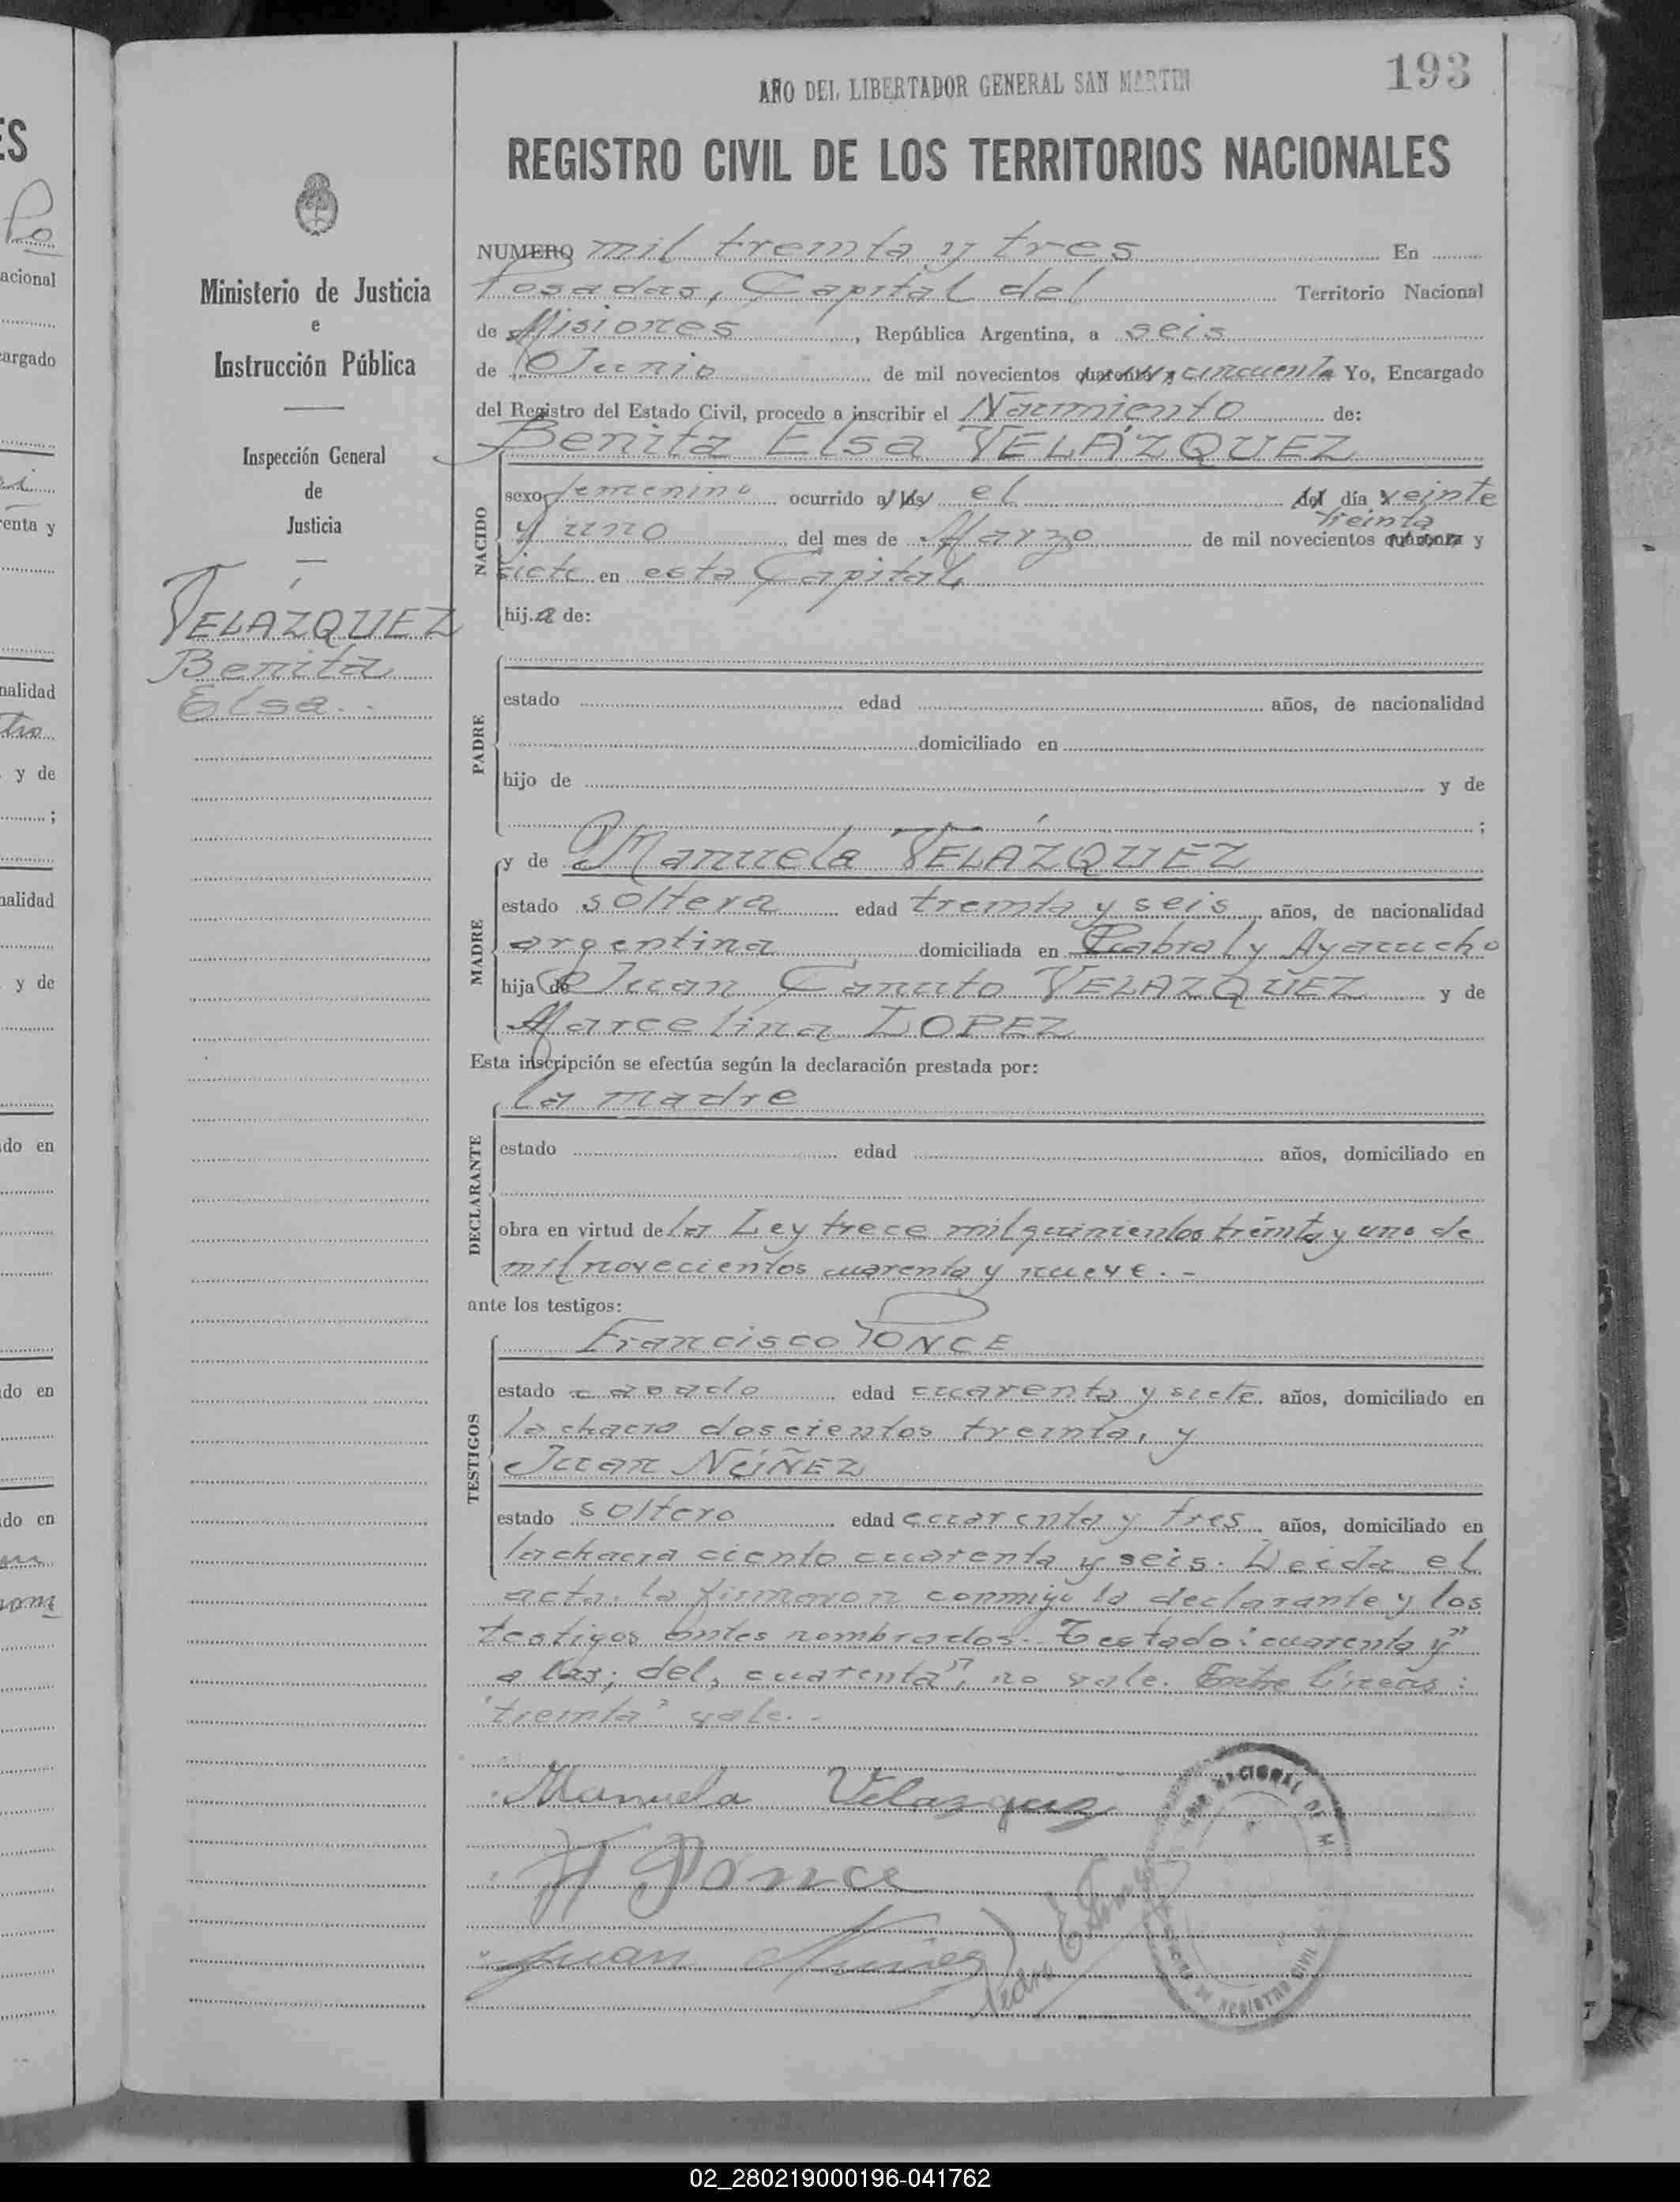 193
AÑO DEL LIBERTADOR GENERAL SAN MARTIN
REGISTRO CIVIL DE LOS TERRITORIOS NACIONALES
Ministerio de Justicia
e
Instrucción Pública
Inspección General
de
Justicia
VELÁZQUEZ
Benita
Elsa.-
NUMERO mil treinta y tres En
Posadas, Capital del Territorio Nacional
de Misiones, República Argentina, a seis
de Junio de mil novecientos cuarenta y cincuenta Yo, Encargado
del Registro del Estado Civil, procedo a inscribir el Nacimiento de:
Benita Elsa VELÁZQUEZ
NACIDO
sexo femenino ocurrido a las el del día veinte
treinta
y uno del mes de Marzo de mil novecientos cuarenta y
siete en esta Capital
hija de:
PADRE
estado edad años, de nacionalidad
domiciliado en
hijo de y de
;
MADRE
y de Manuela VELÁZQUEZ
estado soltera edad treinta y seis años, de nacionalidad
argentina domiciliada en Cabral y Ayacucho
hija de Juan Canuto VELAZQUEZ y de
Marcelina LOPEZ
Esta inscripción se efectúa según la declaración prestada por:
la madre
DECLARANTE
estado edad años, domiciliado en
obra en virtud de la Ley trece mil quinientos treinta y uno de
mil novecientos cuarenta y nueve.-
ante los testigos:
TESTIGOS
Francisco PONCE
estado casado edad cuarenta y siete años, domiciliado en
la chacra doscientos treinta, y
Juan NÚÑEZ
estado soltero edad cuarenta y tres años, domiciliado en
la chacra ciento cuarenta y seis. Leida el
acta, la firmaron conmigo la declarante y los
testigos antes nombrados.- Testado: cuarenta y"
a las; del, cuarenta", no vale. Entre líneas:
"treinta" vale.-
Manuela Velazquez
F Ponce
Juan Nuñez
NACIONAL DE M
REGISTRO CIVIL
ES
acional
argado
enta y
nalidad
y de
;
nalidad
y de
do en
do en
do en
02_280219000196-041762